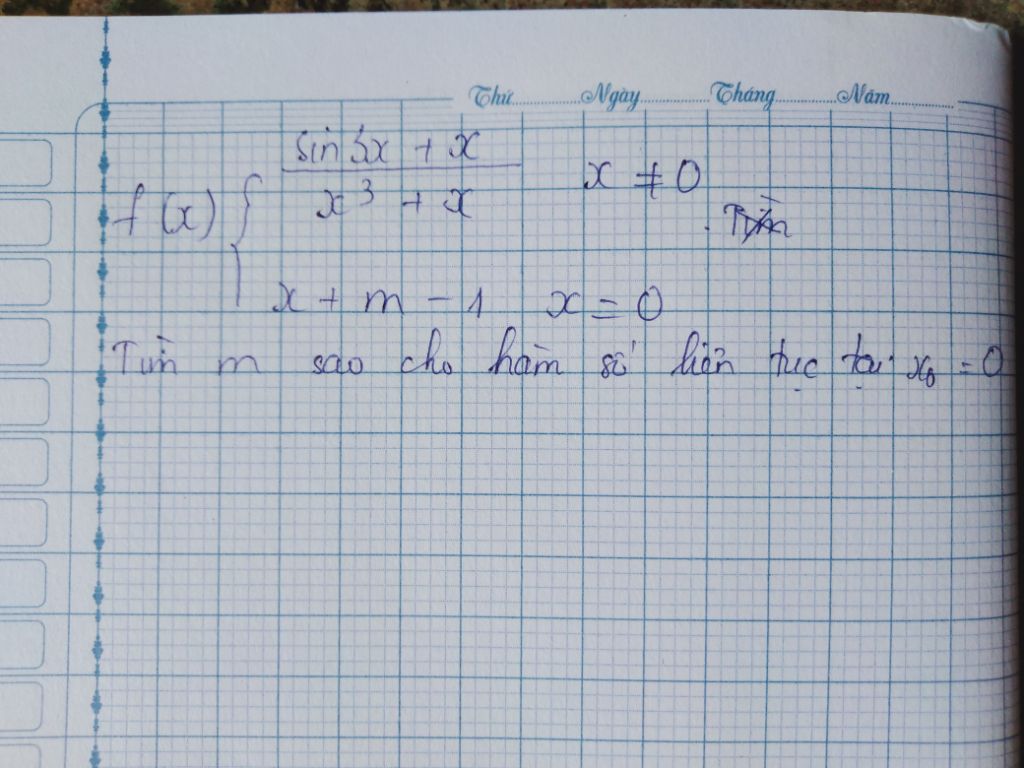 Thứ Ngày Tháng Năm
sin 3x + x
x³ + x
x ≠ 0
f(x) {
x + m - 1 x = 0
Tìm m sao cho hàm số liên tục tại x₀ = 0